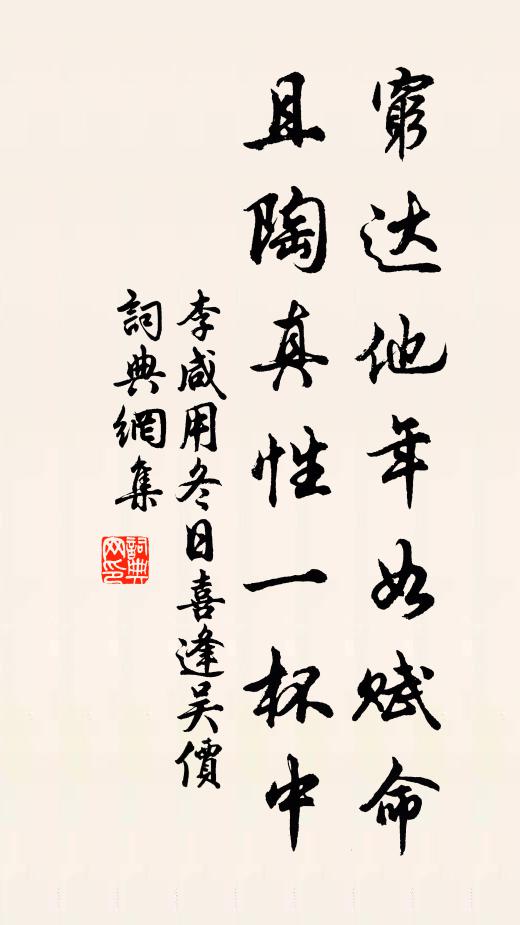 窮达他年如赋命
且陶真性一杯中
李咸用冬日喜逢吴價
詞典網集
詞典网印